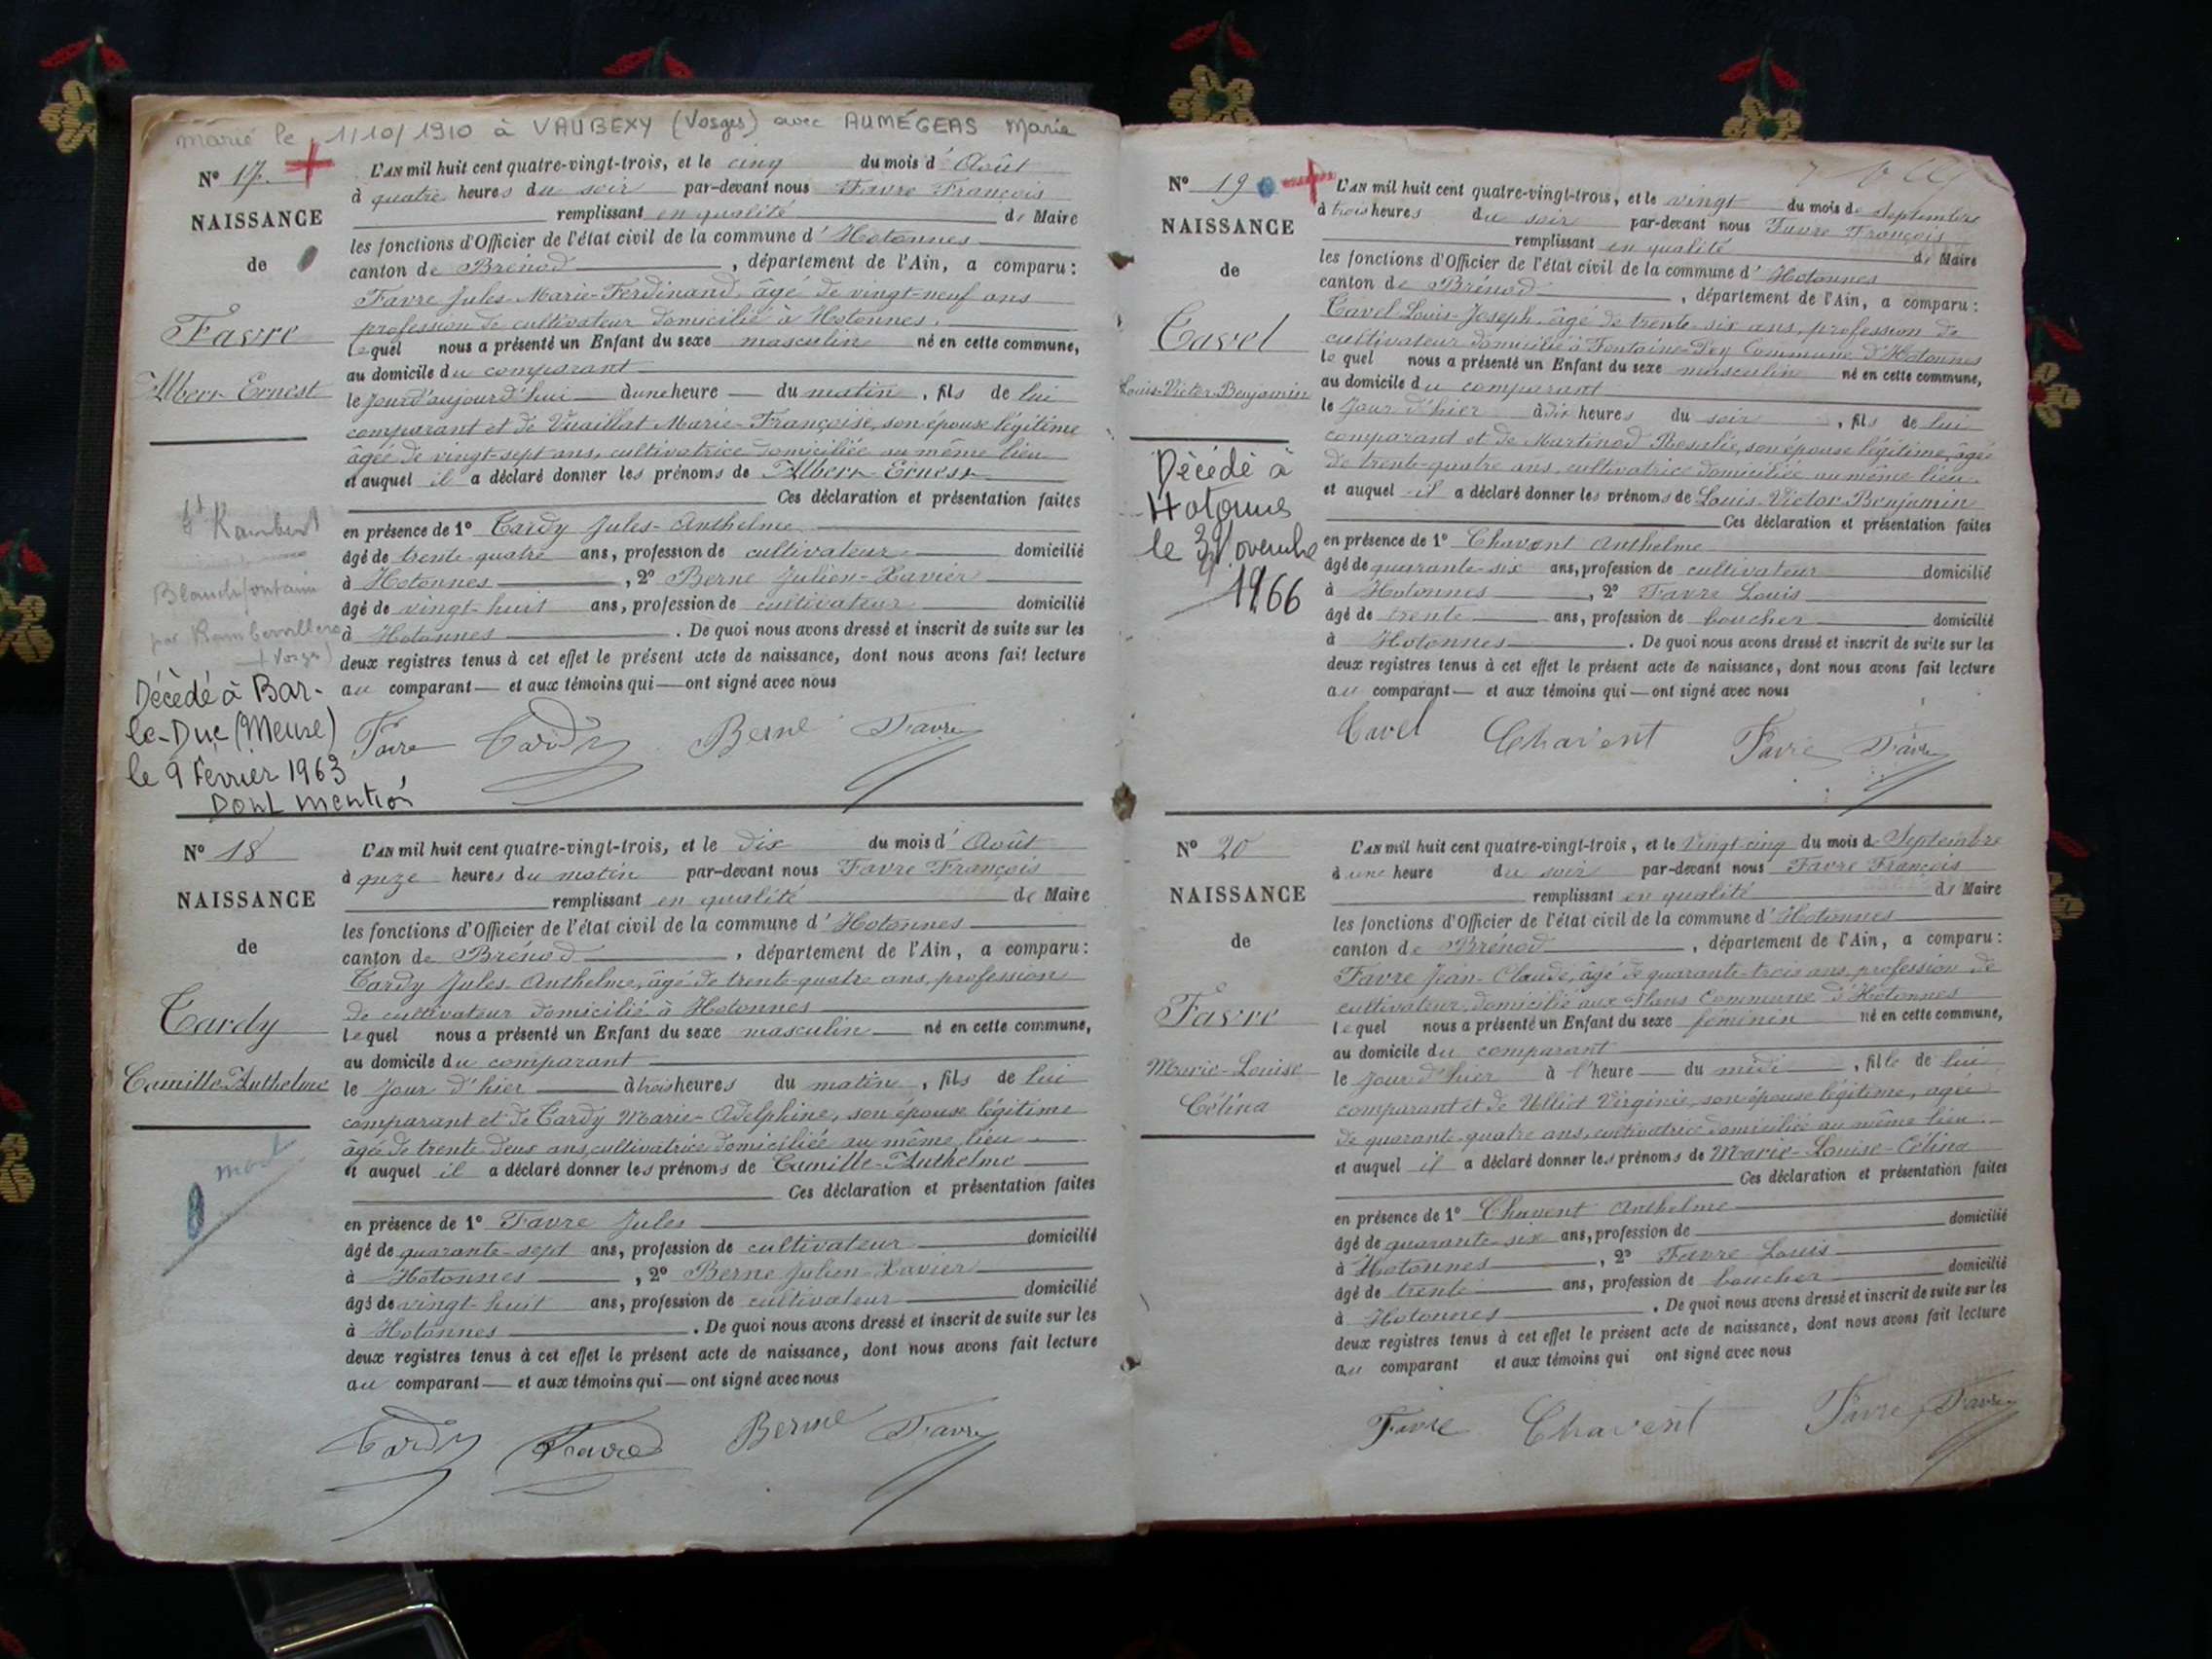 marié le 1/10/1910 à VAUBEXY (Vosges) avec AUMÉGEAS Marie
N° 17.
NAISSANCE
de
Favre
Albert-Ernest
St Rambert
Blanchifontaine
par Rambervillers
(Vosges)
Décédé à Bar-
le-Duc (Meuse)
le 9 Février 1963
Dont mention
L'AN mil huit cent quatre-vingt-trois, et le cinq du mois d'Août
à quatre heures du soir par-devant nous Favre François
remplissant en qualité de Maire
les fonctions d'Officier de l'état civil de la commune d'Hotonnes
canton de Brénod, département de l'Ain, a comparu:
Favre Jules-Marie-Ferdinand, âgé de vingt-neuf ans
profession de cultivateur domicilié à Hotonnes.
lequel nous a présenté un Enfant du sexe masculin né en cette commune,
au domicile du comparant
le jour d'aujourd'hui à une heure du matin, fils de lui
comparant et de Vuaillat Marie-Françoise, son épouse légitime
âgée de vingt-sept ans, cultivatrice domiciliée au même lieu
et auquel il a déclaré donner les prénoms de Albert-Ernest
Ces déclaration et présentation faites
en présence de 1° Tardy Jules-Anthelme
âgé de trente quatre ans, profession de cultivateur domicilié
à Hotonnes, 2° Berne Julien-Xavier
âgé de vingt-huit ans, profession de cultivateur domicilié
à Hotonnes. De quoi nous avons dressé et inscrit de suite sur les
deux registres tenus à cet effet le présent acte de naissance, dont nous avons fait lecture
au comparant — et aux témoins qui — ont signé avec nous
Favre Tardy Berne Favre
N° 18
NAISSANCE
de
Tardy
Camille-Anthelme
mort
L'AN mil huit cent quatre-vingt-trois, et le dix du mois d'Août
à onze heures du matin par-devant nous Favre François
remplissant en qualité de Maire
les fonctions d'Officier de l'état civil de la commune d'Hotonnes
canton de Brénod, département de l'Ain, a comparu:
Tardy Jules-Anthelme, âgé de trente-quatre ans, profession
de cultivateur domicilié à Hotonnes
lequel nous a présenté un Enfant du sexe masculin né en cette commune,
au domicile du comparant
le jour d'hier à trois heures du matin, fils de lui
comparant et de Tardy Marie-Adelphine, son épouse légitime
âgée de trente-deux ans, cultivatrice domiciliée au même lieu
et auquel il a déclaré donner les prénoms de Camille-Anthelme
Ces déclaration et présentation faites
en présence de 1° Favre Jules
âgé de quarante-sept ans, profession de cultivateur domicilié
à Hotonnes, 2° Berne Julien-Xavier
âgé de vingt-huit ans, profession de cultivateur domicilié
à Hotonnes. De quoi nous avons dressé et inscrit de suite sur les
deux registres tenus à cet effet le présent acte de naissance, dont nous avons fait lecture
au comparant — et aux témoins qui — ont signé avec nous
Tardy Favre Berne Favre
N° 19
NAISSANCE
de
Tavel
Louis-Victor-Benjamin
Décédé à
Hotonnes
le Novembre
1966
L'AN mil huit cent quatre-vingt-trois, et le vingt du mois de Septembre
à trois heures du soir par-devant nous Favre François
remplissant en qualité de Maire
les fonctions d'Officier de l'état civil de la commune d'Hotonnes
canton de Brénod, département de l'Ain, a comparu:
Tavel Louis-Joseph, âgé de trente-six ans, profession de
cultivateur domicilié à Fontaine- Commune d'Hotonnes
lequel nous a présenté un Enfant du sexe masculin né en cette commune,
au domicile du comparant
le jour d'hier à dix heures du soir, fils de lui
comparant et de Martinod Rosalie, son épouse légitime, âgée
de trente-quatre ans, cultivatrice domiciliée au même lieu.
et auquel il a déclaré donner les prénoms de Louis-Victor-Benjamin
Ces déclaration et présentation faites
en présence de 1° Chavent Anthelme
âgé de quarante-six ans, profession de cultivateur domicilié
à Hotonnes, 2° Favre Louis
âgé de trente ans, profession de boucher domicilié
à Hotonnes. De quoi nous avons dressé et inscrit de suite sur les
deux registres tenus à cet effet le présent acte de naissance, dont nous avons fait lecture
au comparant — et aux témoins qui — ont signé avec nous
Tavel Chavent Favre Favre
N° 20
NAISSANCE
de
Favre
Marie-Louise
Célina
L'AN mil huit cent quatre-vingt-trois, et le Vingt-cinq du mois de Septembre
à une heure du soir par-devant nous Favre François
remplissant en qualité de Maire
les fonctions d'Officier de l'état civil de la commune d'Hotonnes
canton de Brénod, département de l'Ain, a comparu:
Favre Jean-Claude, âgé de quarante-trois ans, profession de
cultivateur, domicilié aux Plans Commune d'Hotonnes
lequel nous a présenté un Enfant du sexe féminin né en cette commune,
au domicile du comparant
le jour d'hier à l'heure du midi, fille de lui
comparant et de Ulliet Virginie, son épouse légitime, agée
de quarante-quatre ans, cultivatrice domiciliée au même lieu.
et auquel il a déclaré donner les prénoms de Marie-Louise-Célina
Ces déclaration et présentation faites
en présence de 1° Chavent Anthelme
âgé de quarante-six ans, profession de domicilié
à Hotonnes, 2° Favre Louis
âgé de trente ans, profession de boucher domicilié
à Hotonnes. De quoi nous avons dressé et inscrit de suite sur les
deux registres tenus à cet effet le présent acte de naissance, dont nous avons fait lecture
au comparant et aux témoins qui ont signé avec nous
Favre Chavent Favre Favre